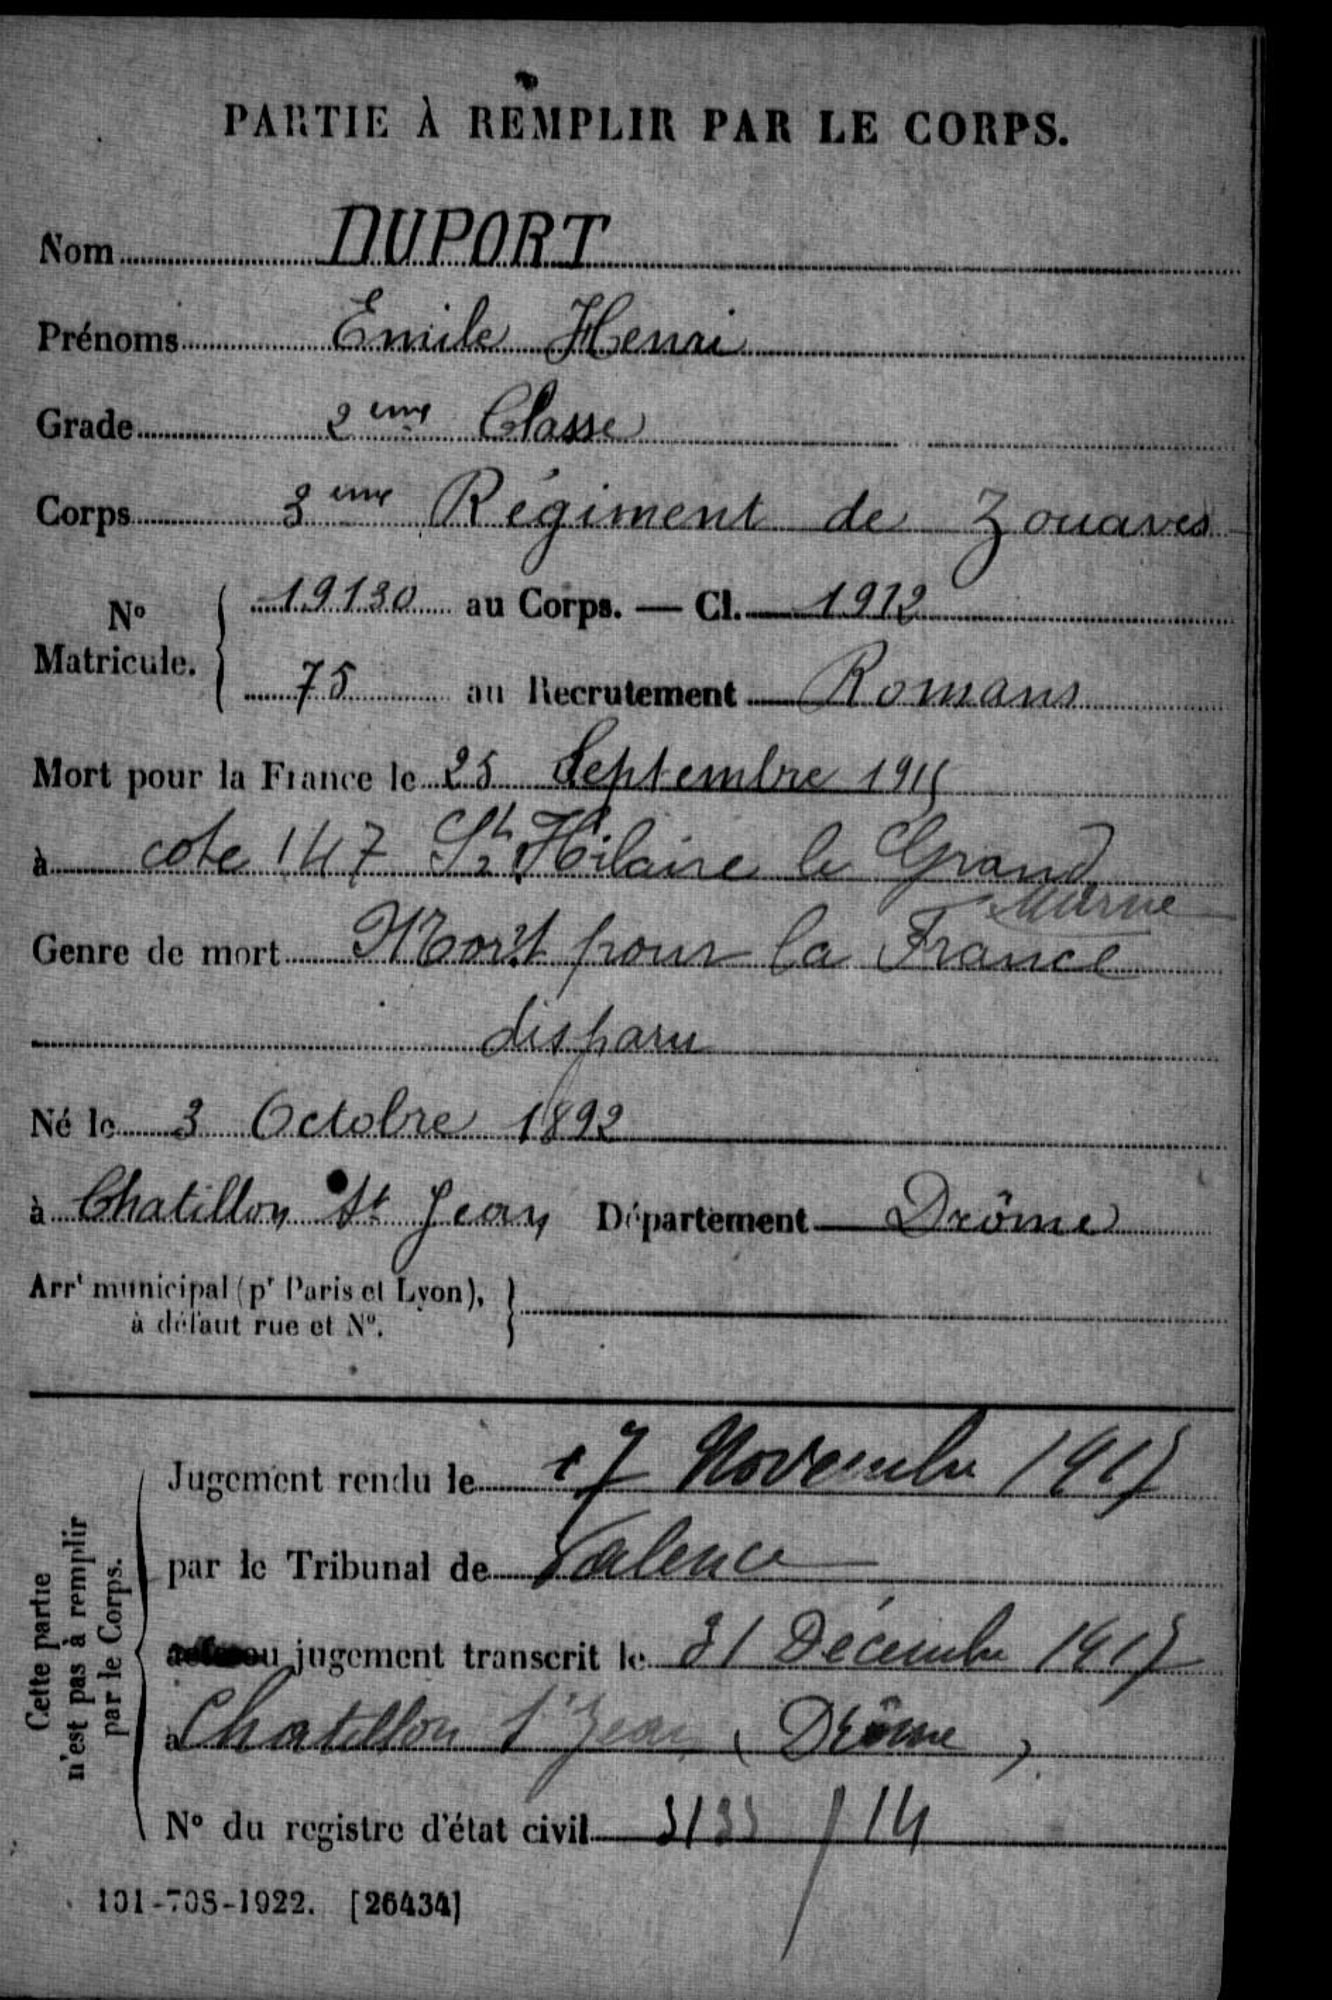 PARTIE À REMPLIR PAR LE CORPS.
Nom DUPORT
Prénoms Emile Henri
Grade 2eme Classe
Corps 3eme Régiment de Zouaves
N° Matricule. 19130 au Corps. — Cl. 1912
75 au Recrutement Romans
Mort pour la France le 25 Septembre 1915
à cote 147 St Hilaire le Grand
Marne
Genre de mort Mort pour la France
disparu
Né le 3 Octobre 1892
à Chatillon St Jean Département Drôme
Arrt municipal (pr Paris et Lyon),
à défaut rue et N°.
Cette partie
n'est pas à remplir
par le Corps.
Jugement rendu le 17 Novembre 1917
par le Tribunal de Valence
ou jugement transcrit le 31 Décembre 1917
à Chatillon St Jean (Drôme)
N° du registre d'état civil /14
101-708-1922. [26434]